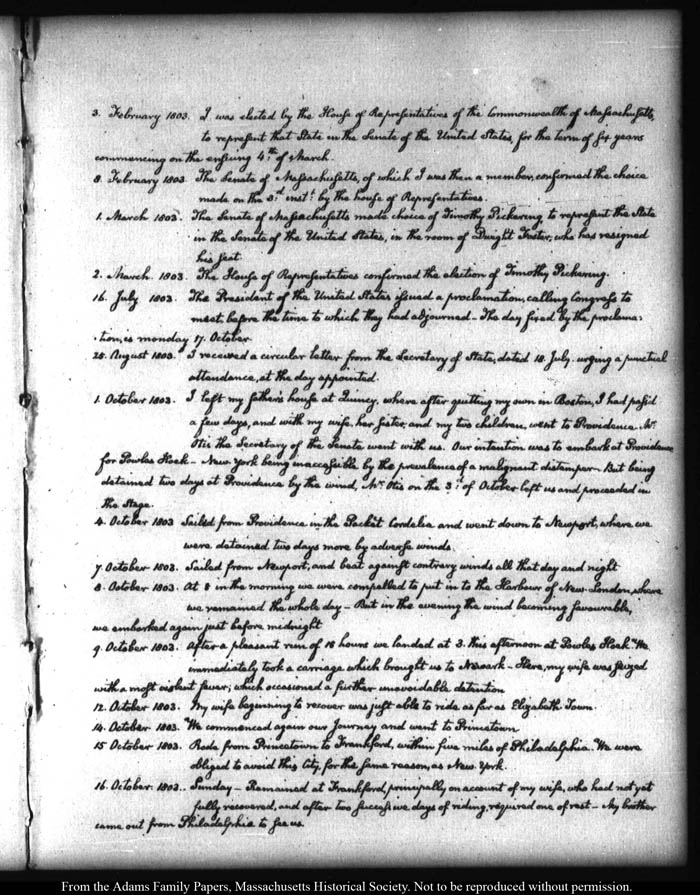 3. February 1803. I was elected by the House of Representatives of the Commonwealth of Massachusetts,
to represent that State in the Senate of the United States, for the term of years
commencing on the ensuing 4th of March.
8. February 1803. The Senate of Massachusetts, of which I was then a member, confirmed the choice
made on the 3d inst. by the house of Representatives.
1. March 1803. The Senate of Massachusetts made choice of Timothy Pickering to represent the State
in the Senate of the United States, in the room of Dwight Foster, who has resigned
his seat
2. March. 1803. The House of Representatives confirmed the election of Timothy Pickering.
16. July 1803. The President of the United States issued a proclamation, calling Congress to
meet, before the time to which they had adjourned – The day fixed by the proclama:
:tion, is monday 17. October.
25. August 1803. I received a circular letter from the Secretary of State, dated 18 July. urging a punctual
attendance, at the day appointed.
1. October 1803. I left my father's house at Quincy, where after quitting my own in Boston, I had pass'd
a few days, and with my wife, her sister, and my two children, went to Providence. Mr.
Otis the Secretary of the Senate went with us. Our intention was to embark at Providence
for Powles Hook – New York being inaccessible by the prevalence of a malignant distemper – But being
detained two days at Providence by the wind, Mr. Otis on the 3d. of October left us and proceeded in
the Stage.
4. October 1803 Sailed from Providence in the Packet Cordelia and went down to Newport, where we
were detained two days more by adverse winds.
7. October 1803. Sailed from Newport, and beat against contrary winds all that day and night
8. October 1803. At 8 in the morning we were compelled to put in to the Harbour of New-London, where
we remained the whole day – But in the evening the wind becoming favourable,
we embarked again just before midnight
9. October 1803. After a pleasant run of 16 hours we landed at 3. this afternoon at Powles Hook. We
immediately took a carriage which brought us to Newark – Here, my wife was seized
with a most violent fever; which occasioned a further unavoidable detention
12. October 1803. My wife beginning to recover was just able to ride as far as Elizabeth Town.
14. October 1803. We commenced again our Journey and went to Princetown
15 October 1803. Rode from Princetown to Frankford, within five miles of Philadelphia. We were
obliged to avoid this City, for the same reason, as New York.
16. October: 1803. Sunday – Remained at Frankford, principally on account of my wife, who had not yet
fully recovered, and after two successive days of riding, required one of rest – My brother
came out from Philadelphia to see us.
From the Adams Family Papers, Massachusetts Historical Society. Not to be reproduced without permission.